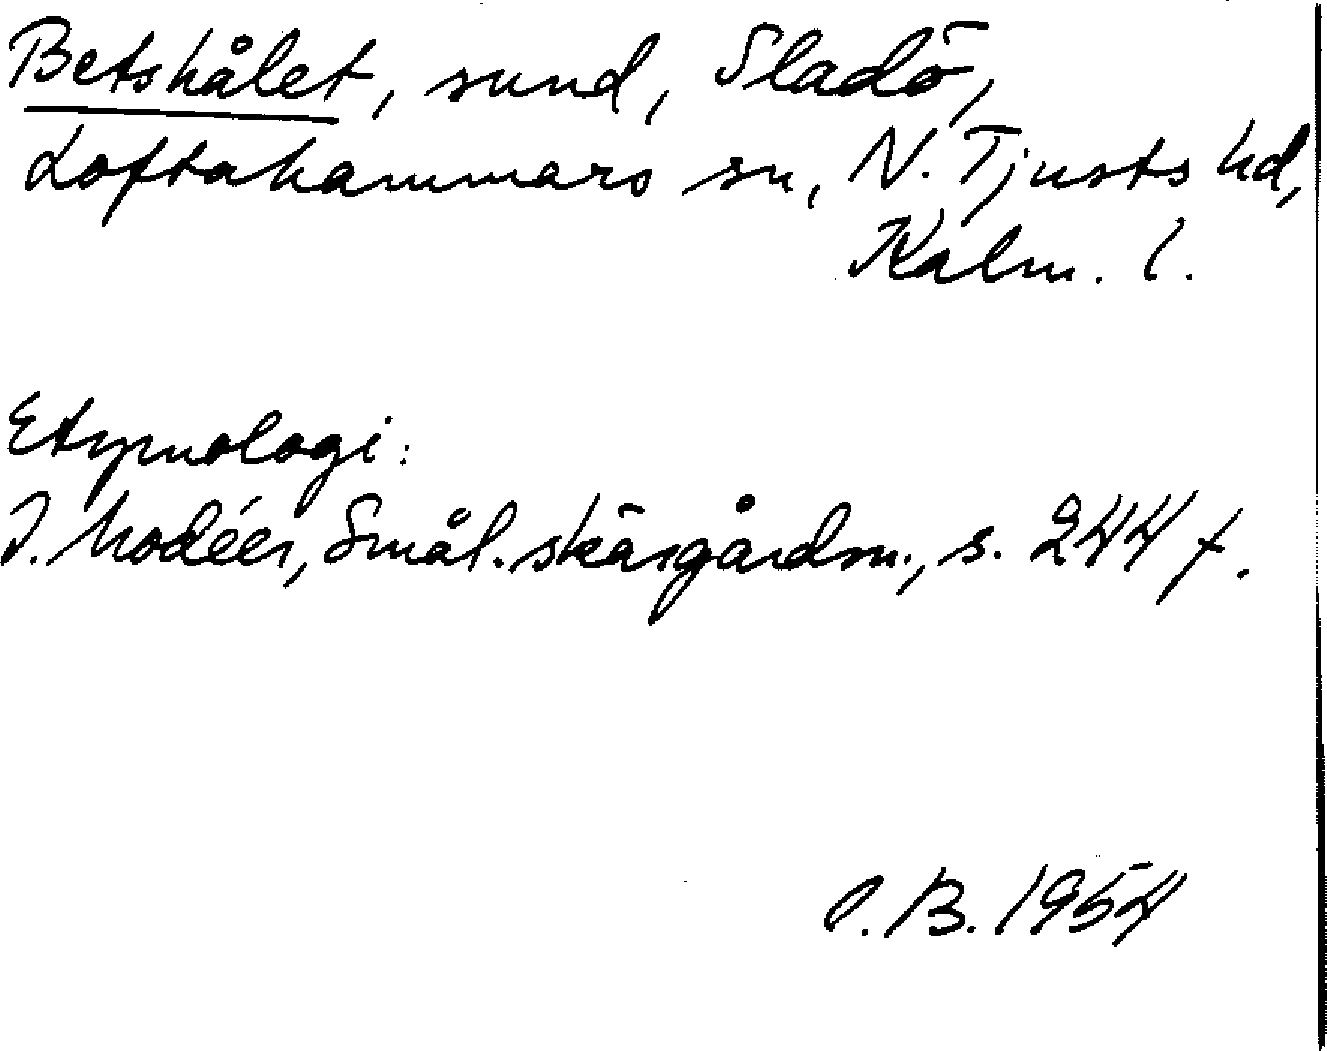 Betshålet, sund, Sladö,
Loftahammars sn, N. Tjusts hd,
Kalm. l.
Etymologi:
I. Modéer, Smål. skärgårdsn., s. 244 f.
O. B. 1954